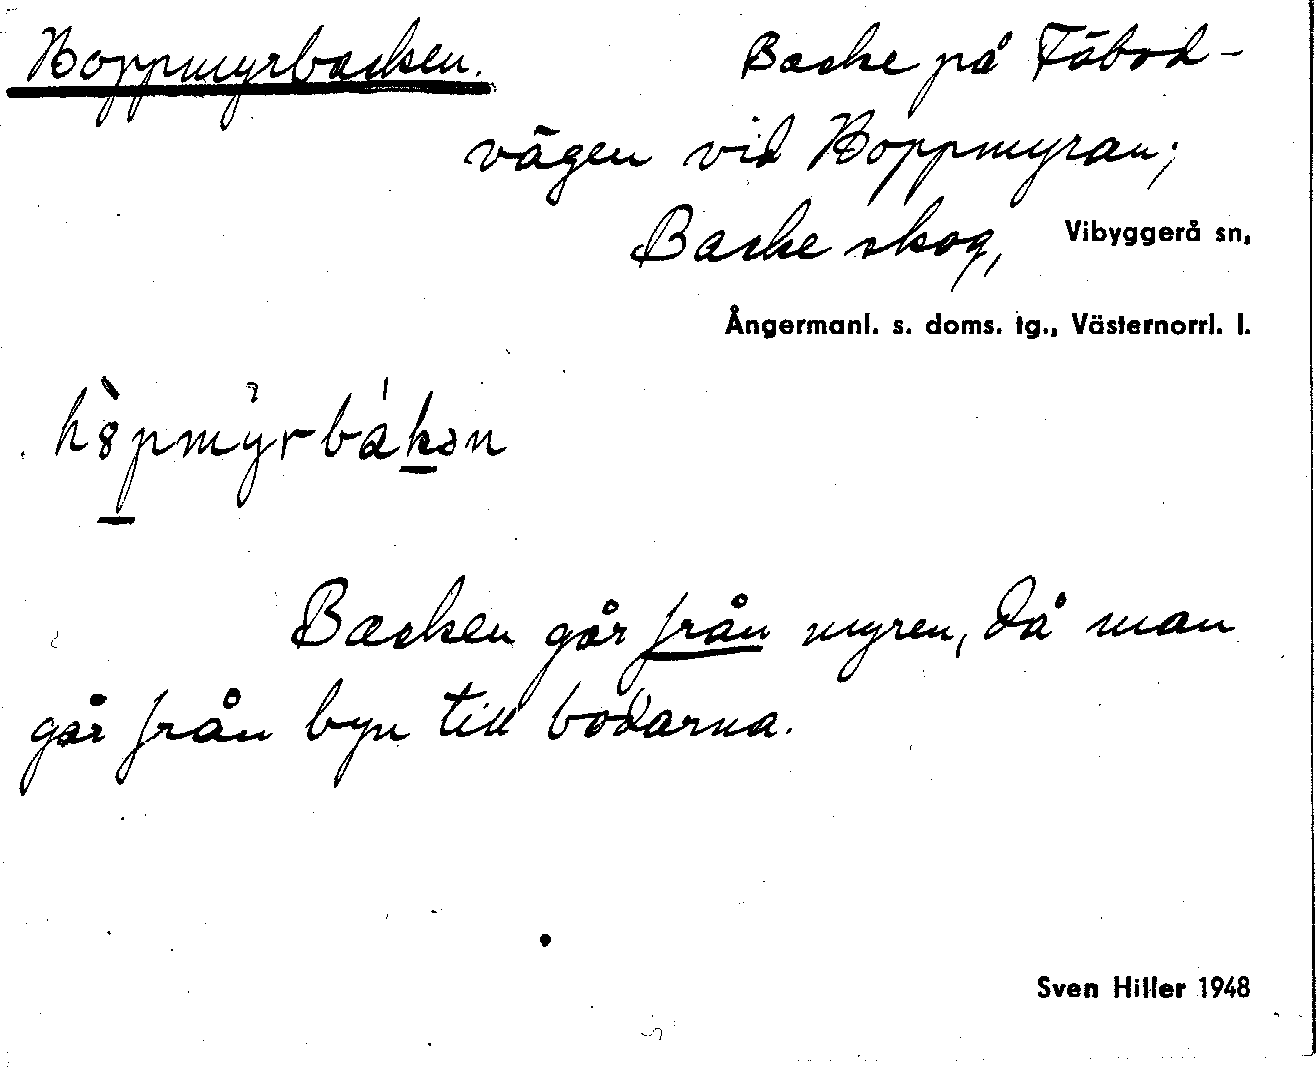 Hoppmyrbacken.
Backe på Fäbod-
vägen vid Hoppmyran;
Backe skog,
Vibyggerå sn,
Ångermanl. s. doms. tg., Västernorrl. l.
Backen går från myren, då man
går från byn till bodarna.
Sven Hiller 1948